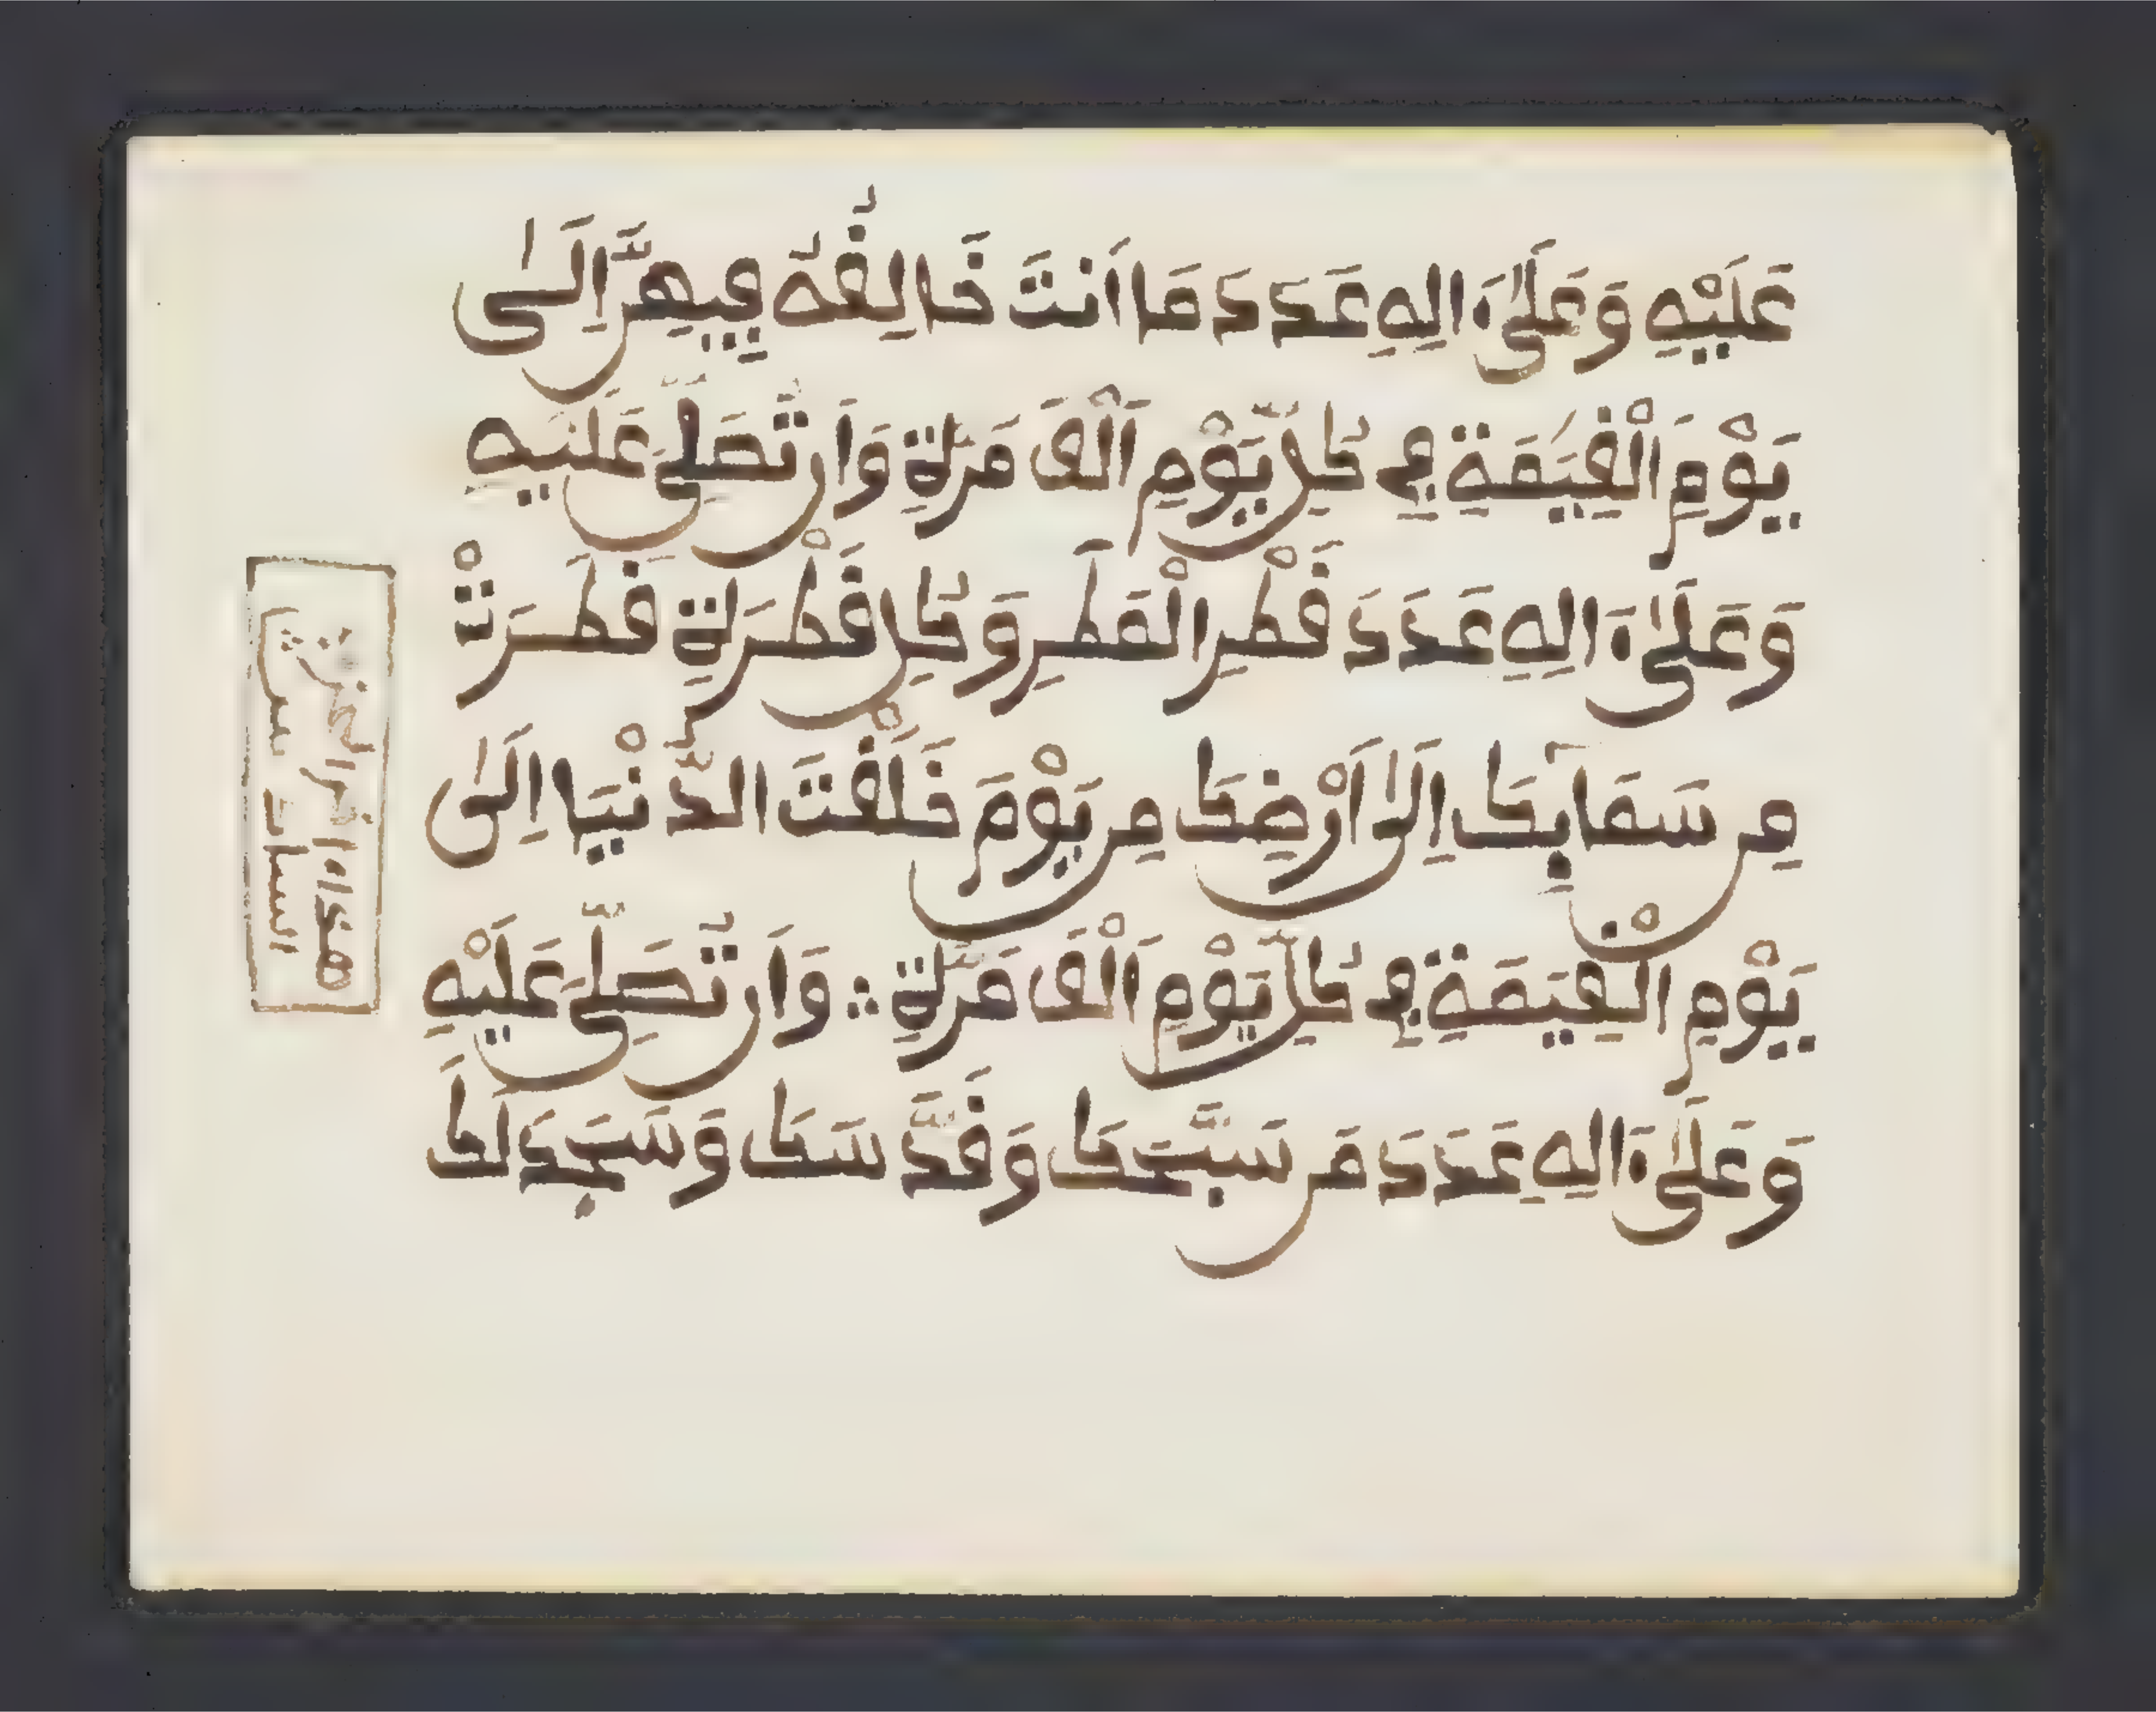 عَلَيْهِ وَعَلَىٰٓ ءَالِهِ عَدَدَ مَا اَنتَ خَالِقُهُ فِيهِنَّ اِلَىٰ
يَوْمِ الْقِيَٰمَةِ فِي كُلِّ يَوْمٍ اَلْفَ مَرَّةٍ وَاَن تُصَلِّيَ عَلَيْهِ
وَعَلَىٰٓ ءَالِهِ عَدَدَ قَطْرِ الْمَطَرِ وَكُلِّ قَطْرَةٍ قَطَرَتْ
مِن سَمَآئِكَ اِلَىٰٓ اَرْضِكَ مِن يَوْمَ خَلَقْتَ الدُّنْيَا اِلَىٰ
يَوْمِ الْقِيَٰمَةِ فِي كُلِّ يَوْمٍ اَلْفَ مَرَّةٍ ؞ وَاَن تُصَلِّيَ عَلَيْهِ
وَعَلَىٰٓ ءَالِهِ عَدَدَ مَن سَبَّحَكَ وَقَدَّسَكَ وَسَجَدَ لَكَ